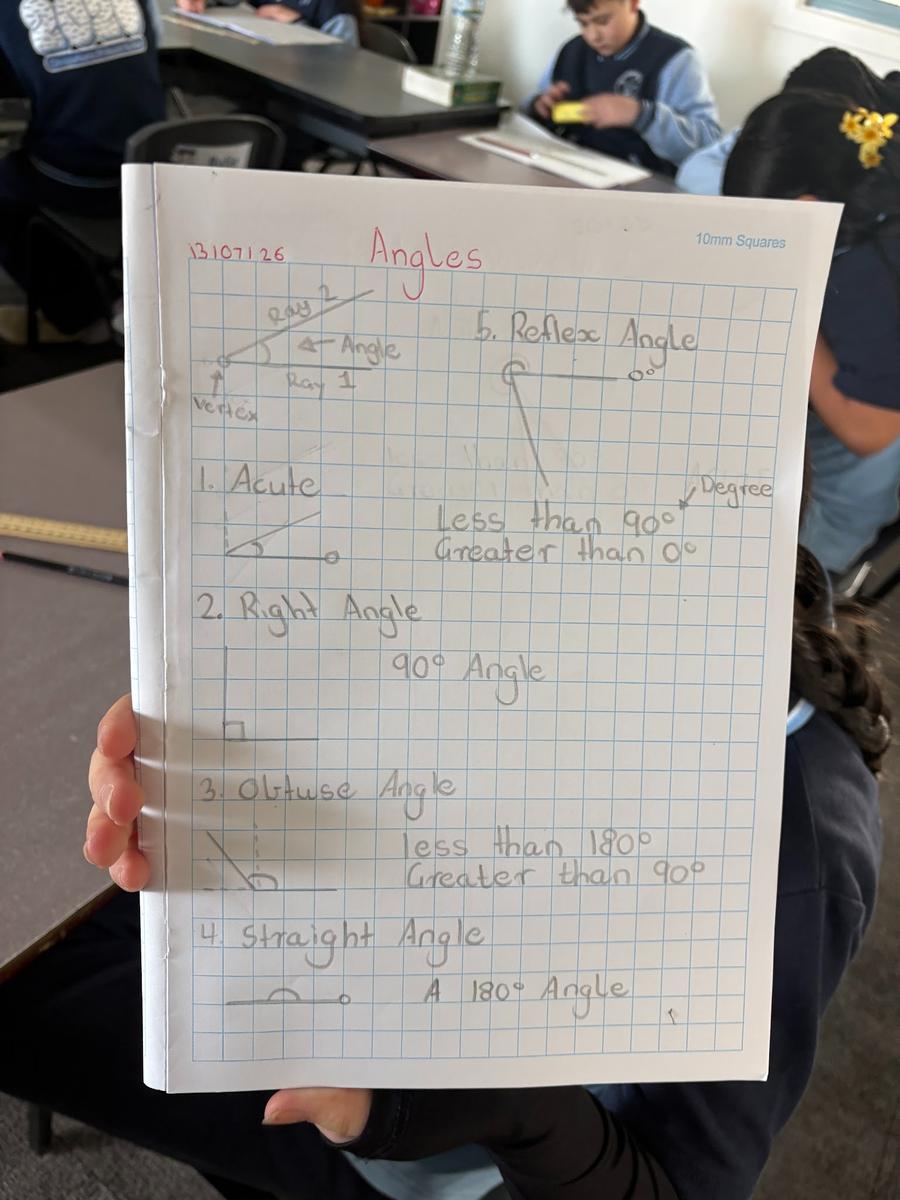 10mm Squares
13/07/26
Angles
Ray 2
Angle
Ray 1
Vertex
5. Reflex Angle
0°
1. Acute
Degree
Less than 90°
Greater than 0°
2. Right Angle
90° Angle
3. Obtuse Angle
less than 180°
Greater than 90°
4. Straight Angle
A 180° Angle